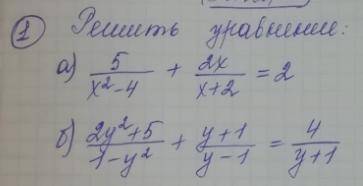 ① Решить уравнение:
а) 5/(x²-4) + 2x/(x+2) = 2
б) (2y²+5)/(1-y²) + (y+1)/(y-1) = 4/(y+1)